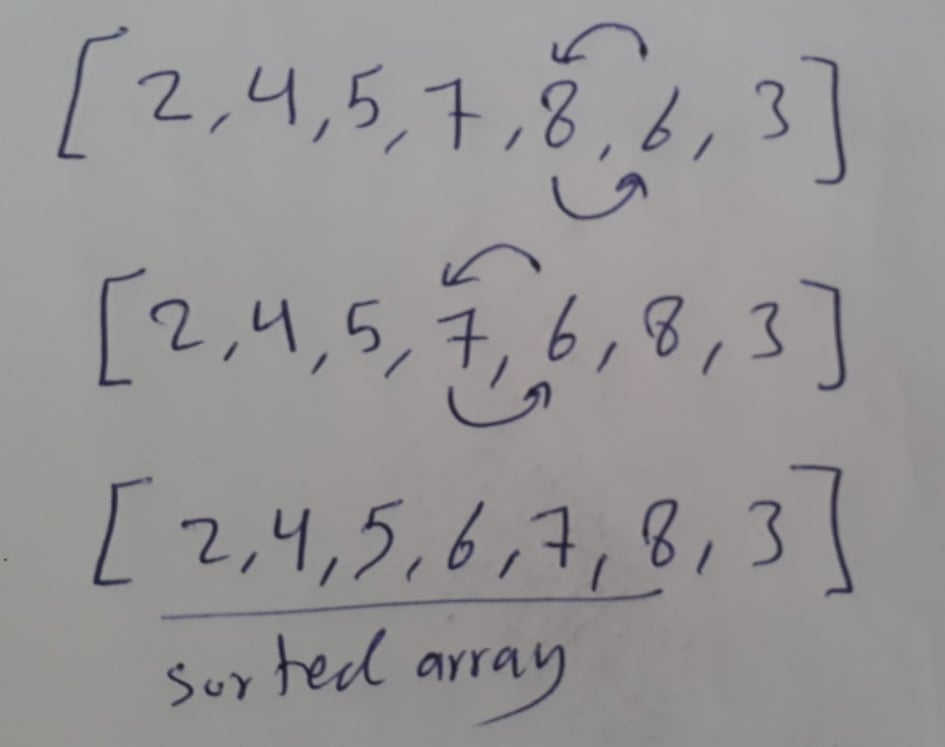 [2,4,5,7,8,6,3]
[2,4,5,7,6,8,3]
[2,4,5,6,7,8,3]
sorted array